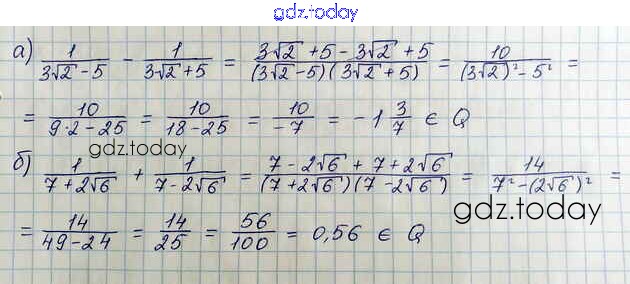 gdz.today
а) 1/(3√2 - 5) - 1/(3√2 + 5) = (3√2 + 5 - 3√2 + 5)/((3√2 - 5)(3√2 + 5)) = 10/((3√2)² - 5²) =
= 10/(9·2 - 25) = 10/(18 - 25) = 10/(-7) = -1 3/7 ∈ Q
gdz.today
б) 1/(7 + 2√6) + 1/(7 - 2√6) = (7 - 2√6 + 7 + 2√6)/((7 + 2√6)(7 - 2√6)) = 14/(7² - (2√6)²) =
gdz.today
= 14/(49 - 24) = 14/25 = 56/100 = 0,56 ∈ Q